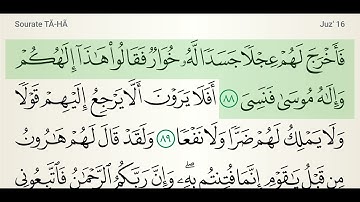 Sourate TĀ-HĀ
Juz' 16
فَأَخْرَجَ لَهُمْ عِجْلًا جَسَدًا لَّهُۥ خُوَارٌ فَقَالُوا۟ هَٰذَآ إِلَٰهُكُمْ
وَإِلَٰهُ مُوسَىٰ فَنَسِىَ ٨٨ أَفَلَا يَرَوْنَ أَلَّا يَرْجِعُ إِلَيْهِمْ قَوْلًا
وَلَا يَمْلِكُ لَهُمْ ضَرًّا وَلَا نَفْعًا ٨٩ وَلَقَدْ قَالَ لَهُمْ هَٰرُونُ
مِن قَبْلُ يَٰقَوْمِ إِنَّمَا فُتِنتُم بِهِۦ ۖ وَإِنَّ رَبَّكُمُ ٱلرَّحْمَٰنُ فَٱتَّبِعُونِى